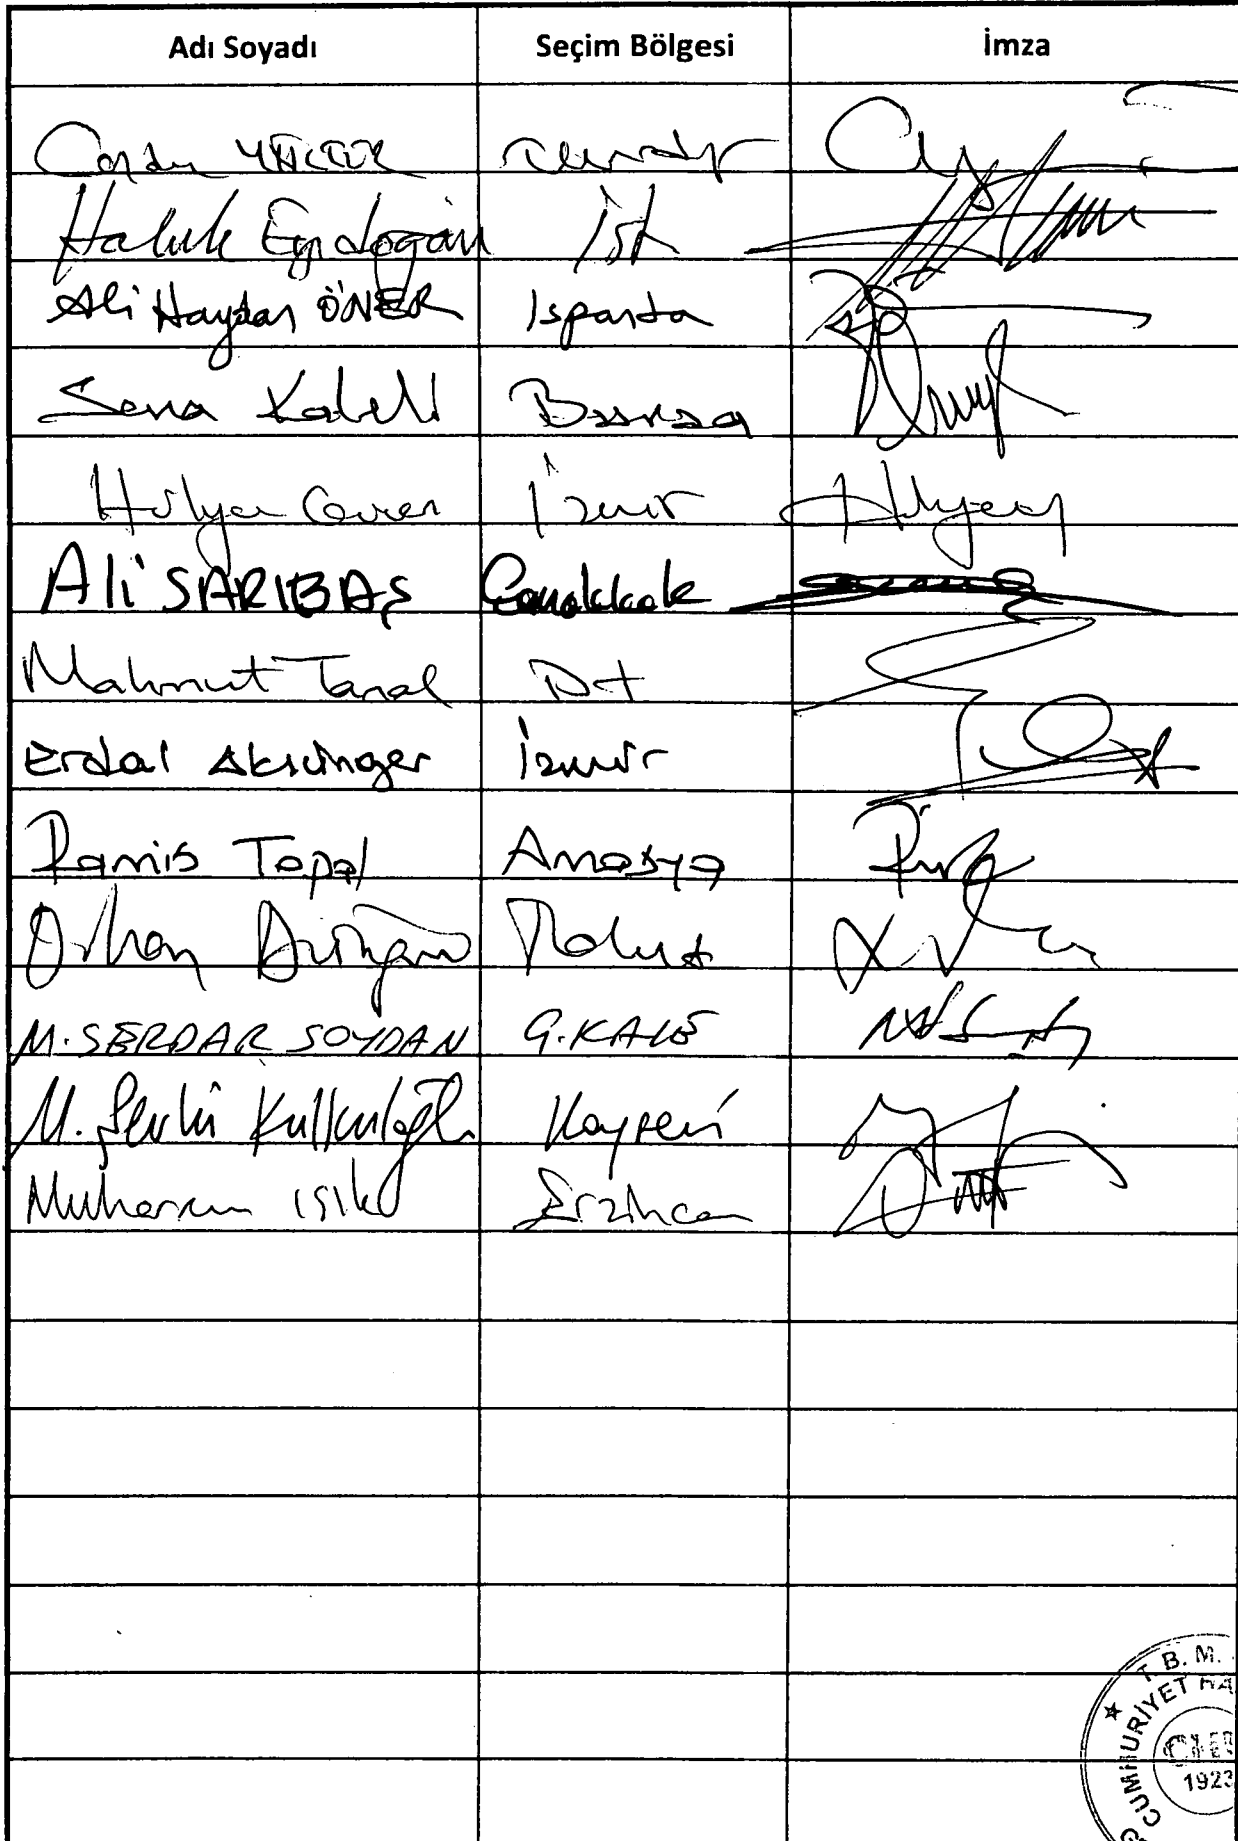 Adı Soyadı Seçim Bölgesi İmza
Haluk Eyidoğan İst
Ali Haydar ÖNER Isparta
Sena Kaleli Bursa
Hülya Güven İzmir
Ali SARIBAŞ Çanakkale
Mahmut Tanal İst
Erdal Aksünger İzmir
Ramis Topal Amasya
Orhan Düzgün Tokat
M. SERDAR SOYDAN Ç.KALE
M. Şevki Kulkuloğlu Kayseri
Muharrem IŞIK Erzincan
T. B. M.
CUMHURİYET HA
1923